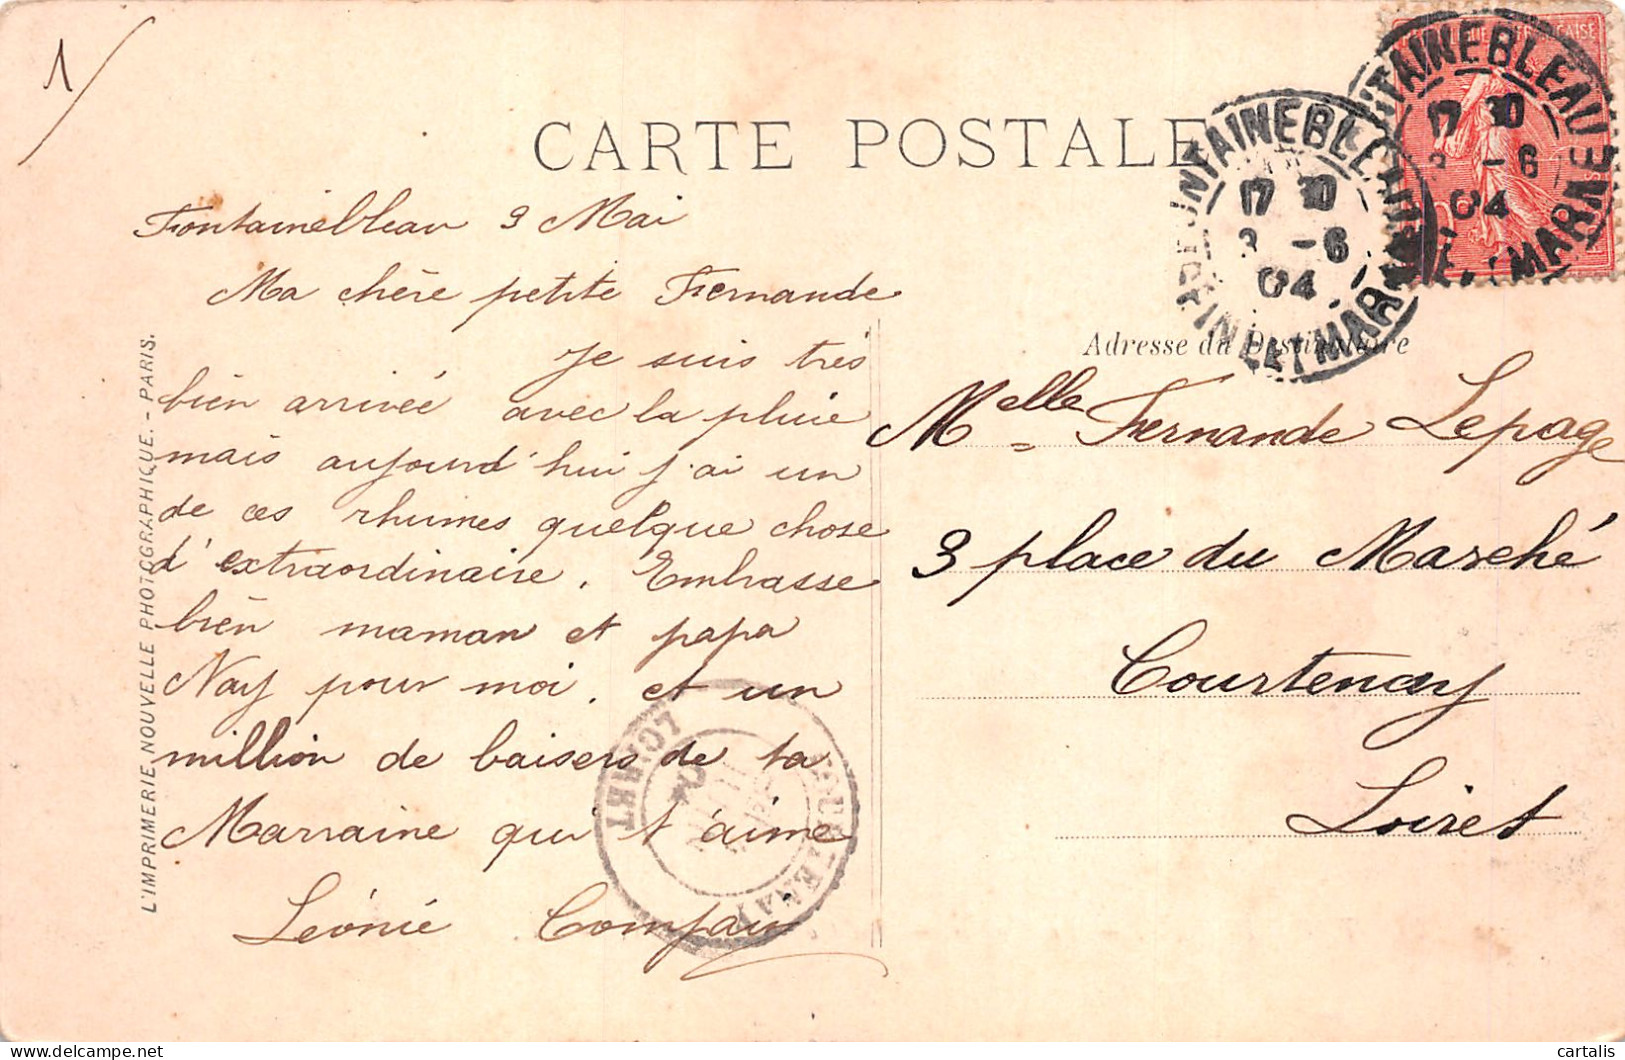 1
CARTE POSTALE
FONTAINEBLEAU
17 30
3 - 6
04
SEINE ET MARNE
FONTAINEBLEAU
17 30
3 - 6
04
MARNE
Fontainebleau 3 Mai
Ma chère petite Fernande
Je suis très
bien arrivée avec la pluie
mais aujourd'hui j'ai un
de ces rhumes quelque chose
d'extraordinaire. Embrasse
bien maman et papa
Nay pour moi. et un
million de baisers de ta
Marraine qui t'aime
Léonie Compain
Adresse du Destinataire
Melle Fernande Lepage
3 place du Marché
Courtenay
Loiret
COURTENAY
LOIRET
04
L'IMPRIMERIE NOUVELLE PHOTOGRAPHIQUE. - PARIS.
cartalis